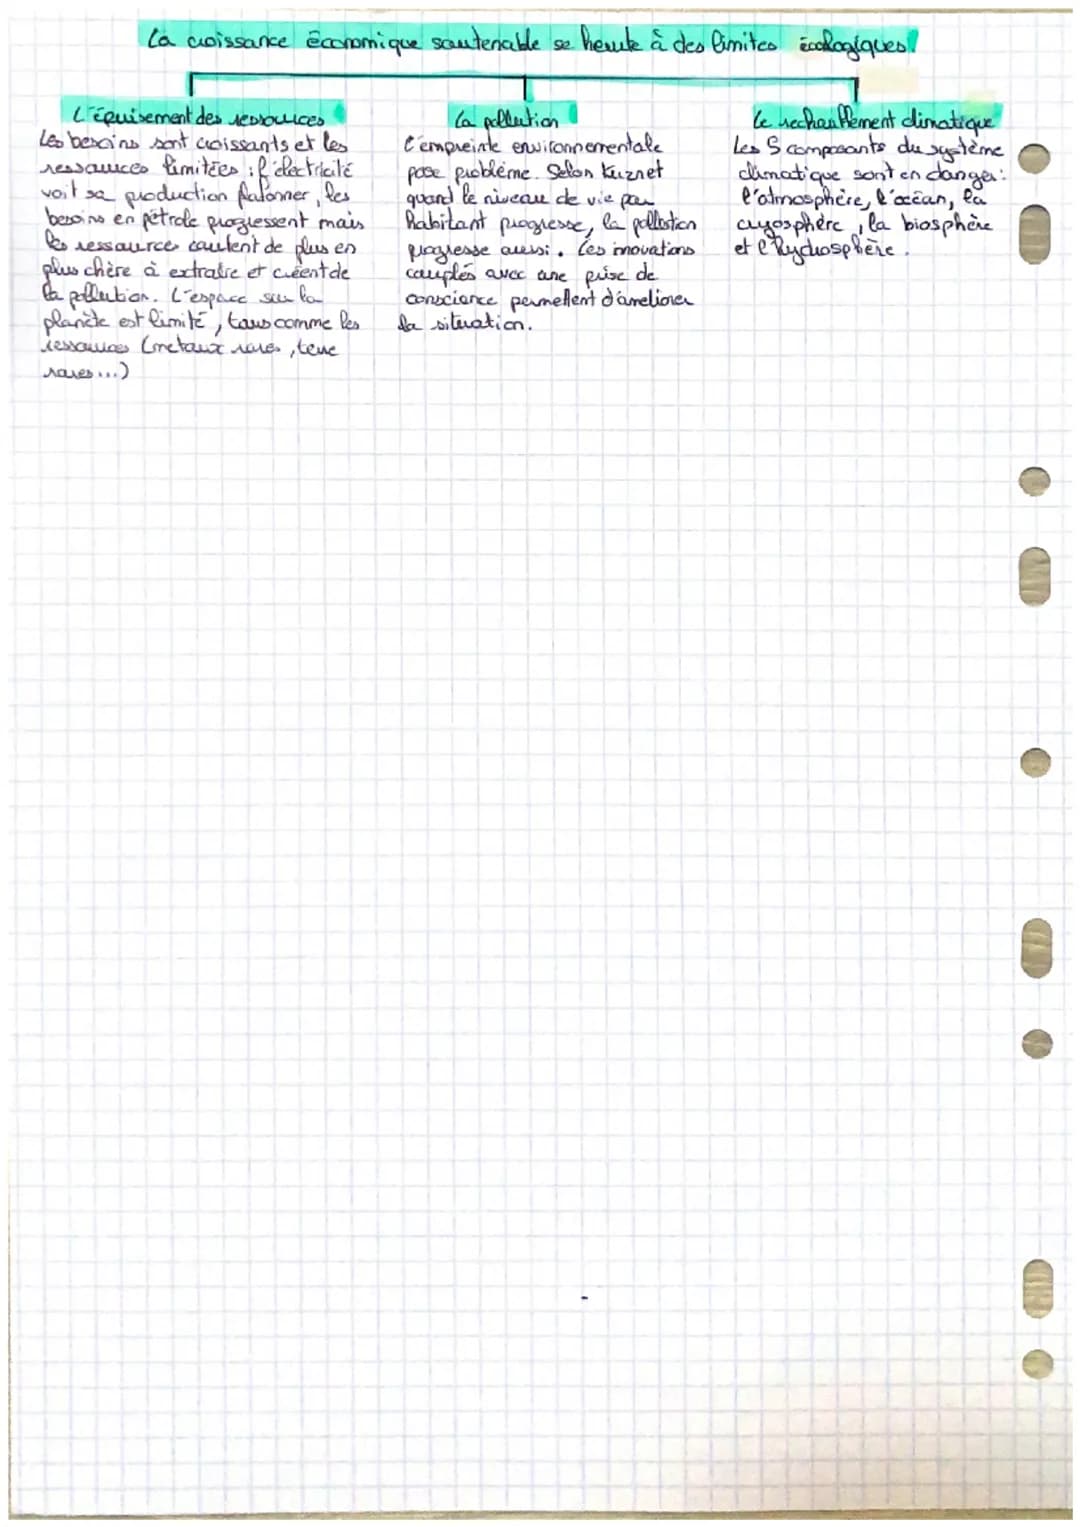 La croissance économique soutenable se heurte à des limites écologiques.
L'épuisement des ressources
Les besoins sont croissants et les
ressources limitées : l'éléctricité
voit sa production plafonner, les
besoins en pétrole progressent mais
les ressources coutent de plus en
plus chère à extraire et créent de
la pollution. L'espace sur la
planète est limité, tous comme les
ressources (metaux rares, terre
rares...)
La pollution
L'empreinte environnementale
pose problème. Selon Kuznet
quand le niveau de vie par
habitant progresse, la pollution
progresse aussi. Les innovations
couplés avec une prise de
conscience permettent d'ameliorer
la situation.
Le rechauffement climatique
Les 5 composants du système
climatique sont en danger :
l'atmosphère, l'océan, la
cryosphère, la biosphère
et l'hydrosphère.